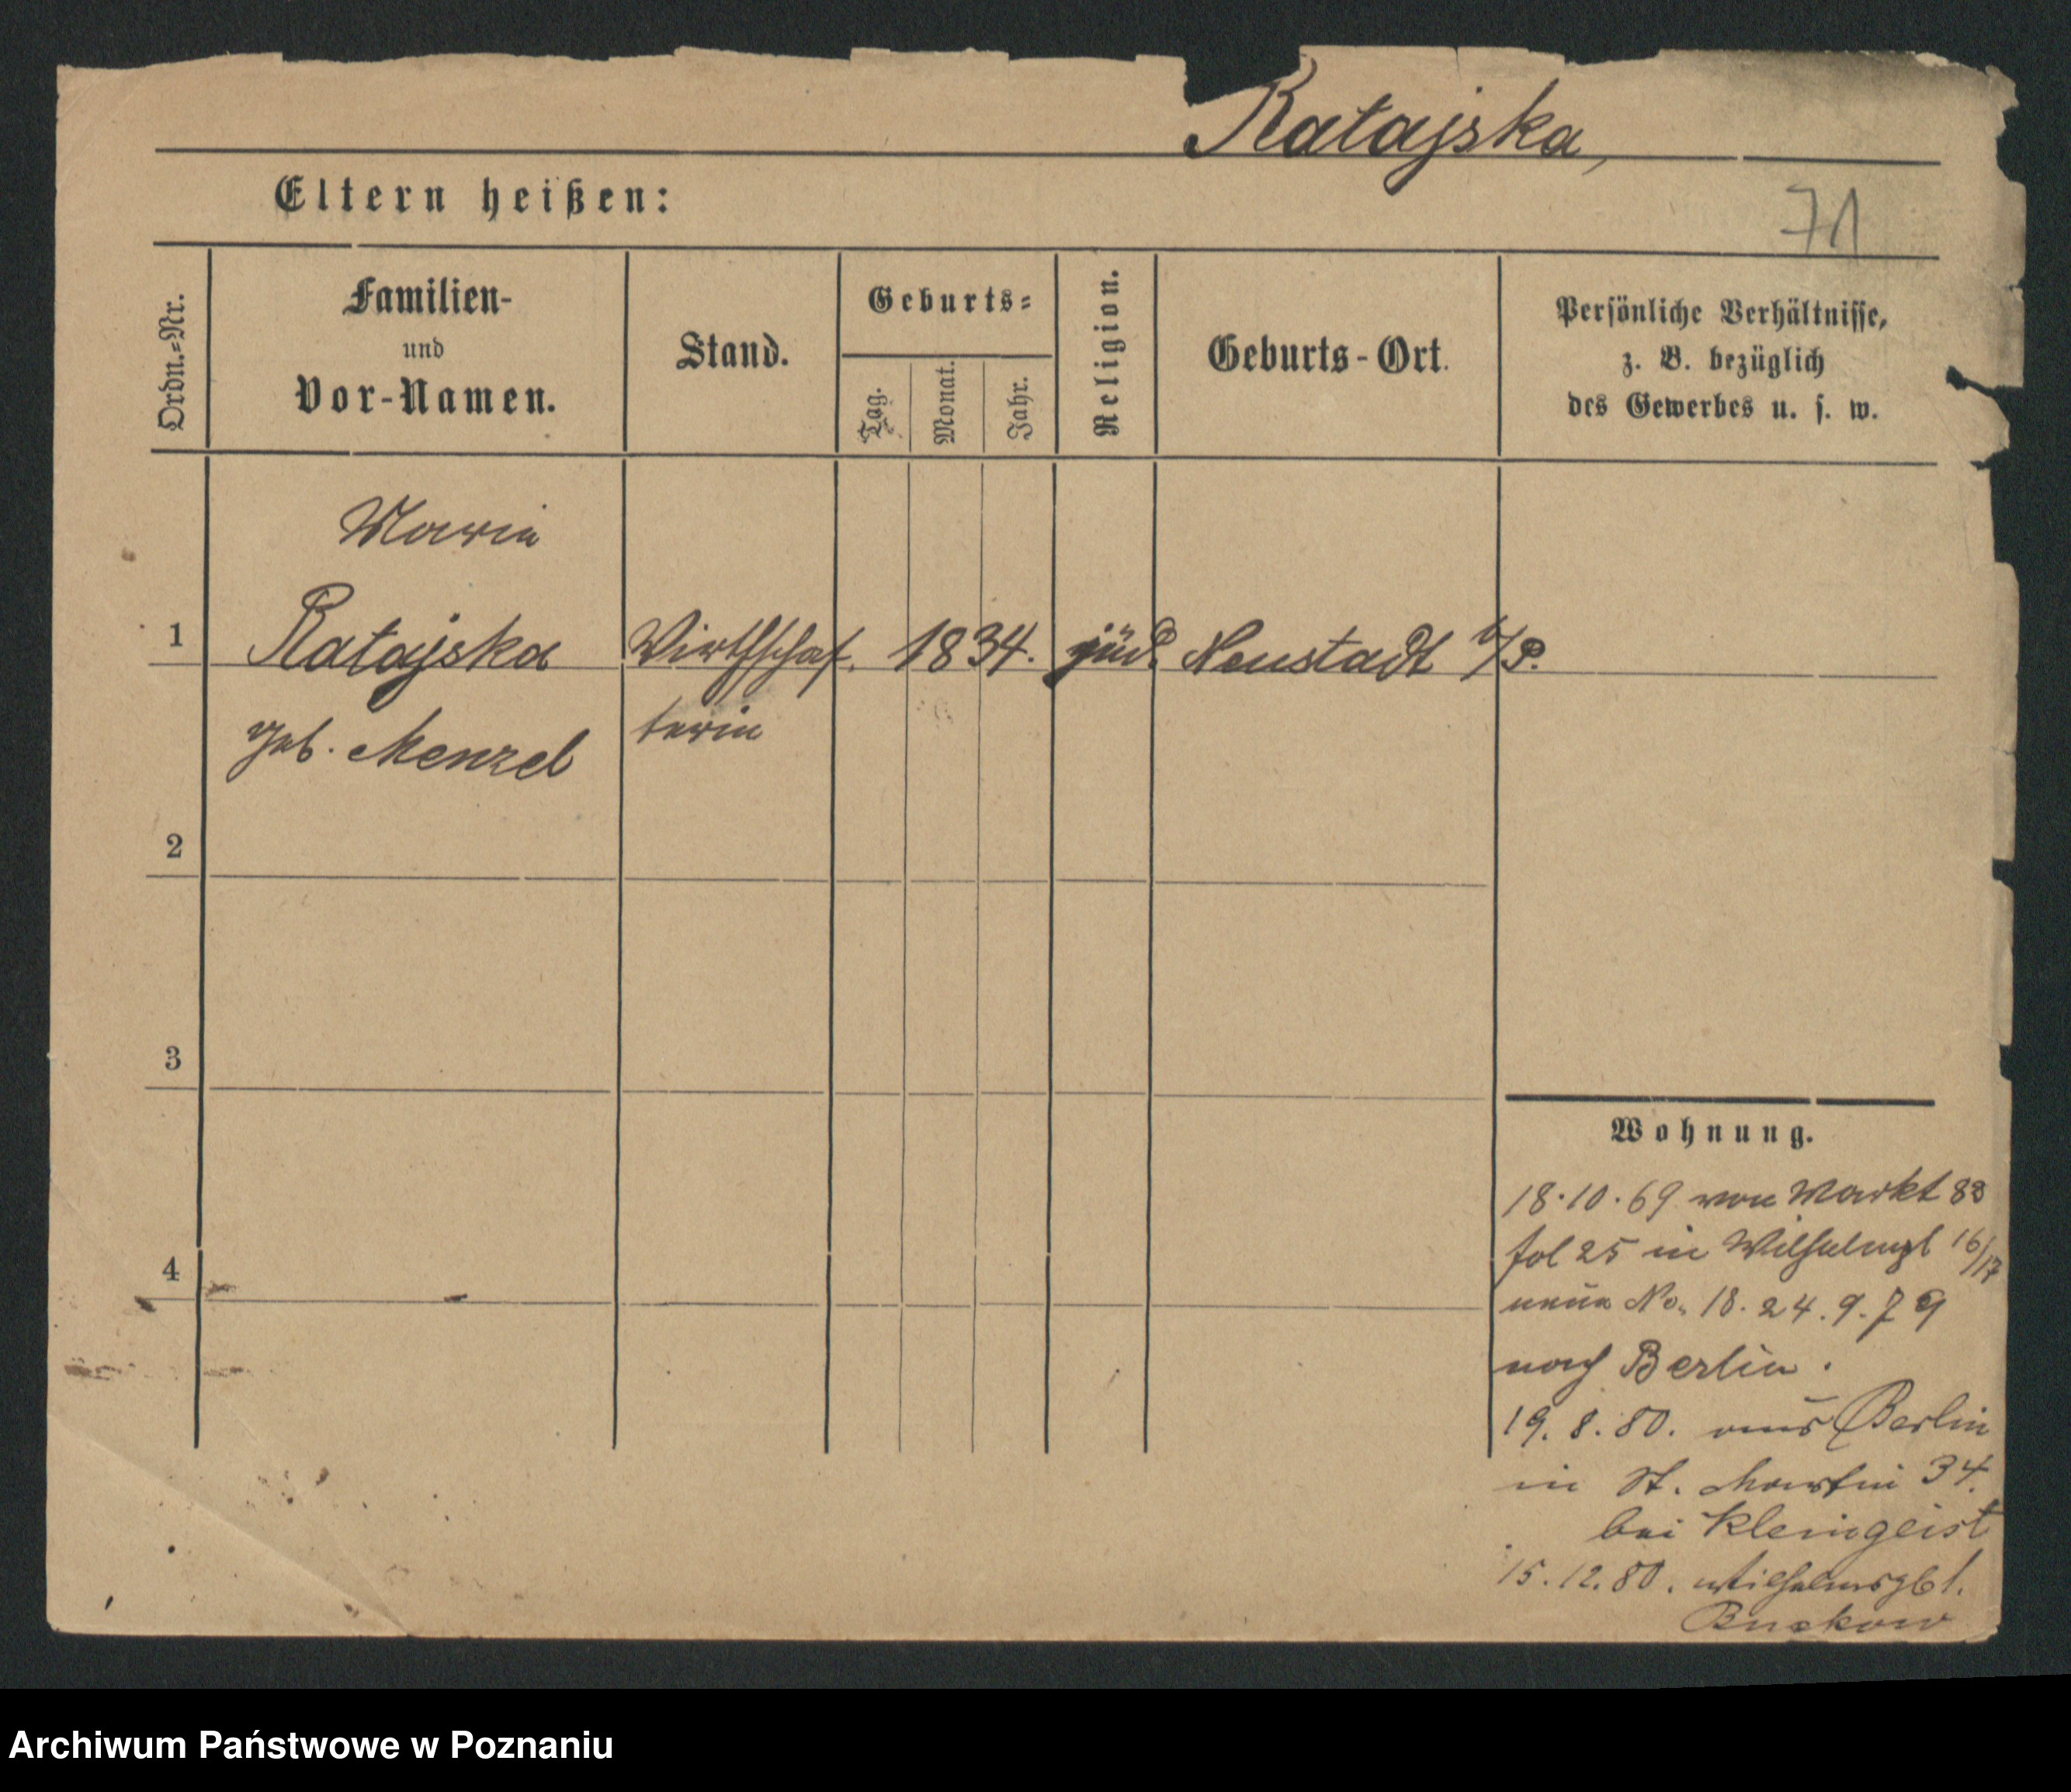 Ratajska,
Eltern heißen:
71
Ordn.=Nr.
Familien-
und
Vor-Namen.
Stand.
Geburts=
Tag.
Monat.
Jahr.
Religion.
Geburts-Ort.
Persönliche Verhältnisse,
z. B. bezüglich
des Gewerbes u. s. w.
Marie
1 Ratajska Wirthschaf. 1834. jüd. Neustadt b/P.
geb. Menzel terin
2
3
4
Wohnung.
18.10.69 von Markt 88
fol 25 in Wilhelmpl 16/17
neue No. 18. 24.9.79
nach Berlin.
19.8.80. aus Berlin
in St. Martin 34.
bei Kleingeist
15.12.80. 1.
Buckow
Archiwum Państwowe w Poznaniu